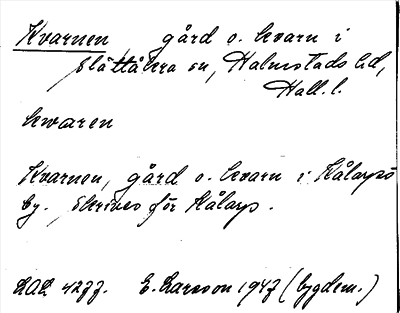 Kvarnen gård o. kvarn i
Slättåkra sn, Halmstads hd,
Hall. l.
kwaren
Kvarnen, gård o. kvarn i Kålarps
by. Skrives för Kålarp.
E. Larsson 1947 (bygdem.)